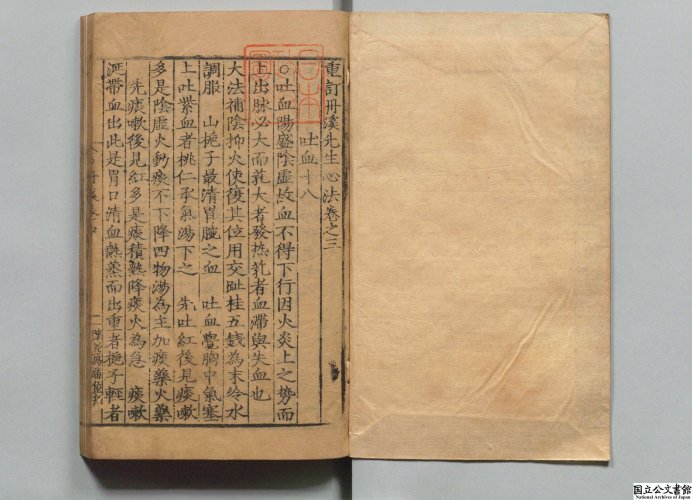 重訂丹溪先生心法卷之三
吐血十八
○吐血陽盛陰虛故血不得下行因火炎上之勢而
上出脉必大而芤大者發熱芤者血滯與失血也
大法補陰抑火使復其位用交趾桂五錢為末冷水
調服 山梔子最清胃脘之血 吐血覺胸中氣塞
上吐紫血者桃仁承氣湯下之 先吐紅後見痰嗽
多是陰虛火動痰不下降四物湯為主加痰藥火藥
先痰嗽後見紅多是痰積熱降痰火為急 痰嗽
涎帶血出此是胃口清血熱蒸而出重者梔子輕者
国立公文書館
National Archives of Japan